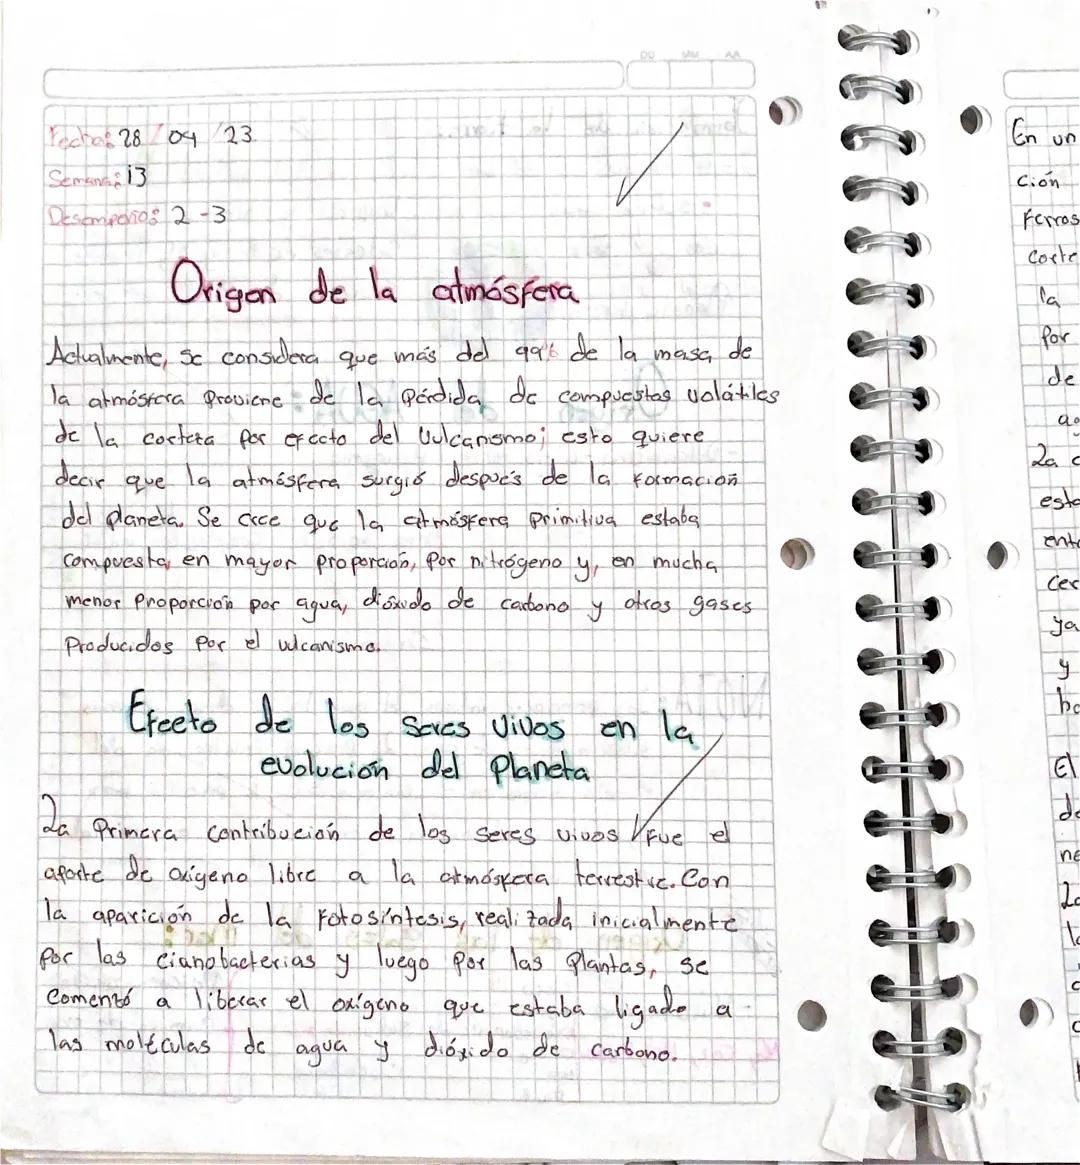 DD MM AA
Fecha: 28 / 04 / 23
Semana: 13
Desempeños: 2 - 3
Origen de la atmósfera
Actualmente, se considera que más del 99% de la masa de
la atmósfera proviene de la pérdida de compuestos volátiles
de la corteza por efecto del vulcanismo; esto quiere
decir que la atmósfera surgió después de la formación
del planeta. Se cree que la atmósfera primitiva estaba
compuesta, en mayor proporción, por nitrógeno y, en mucha
menor proporción por agua, dióxido de carbono y otros gases
Producidos por el vulcanismo.
Efecto de los seres vivos en la
evolución del Planeta
La primera contribución de los seres vivos fue el
aporte de oxígeno libre a la atmósfera terrestre. Con
la aparición de la fotosíntesis, realizada inicialmente
por las cianobacterias y luego por las plantas, se
comentó a liberar el oxígeno que estaba ligado a
las moléculas de agua y dióxido de carbono.
En un
ción
ferros
corte
la
por
de
La c
esta
ento
cer
ya
y
El
de